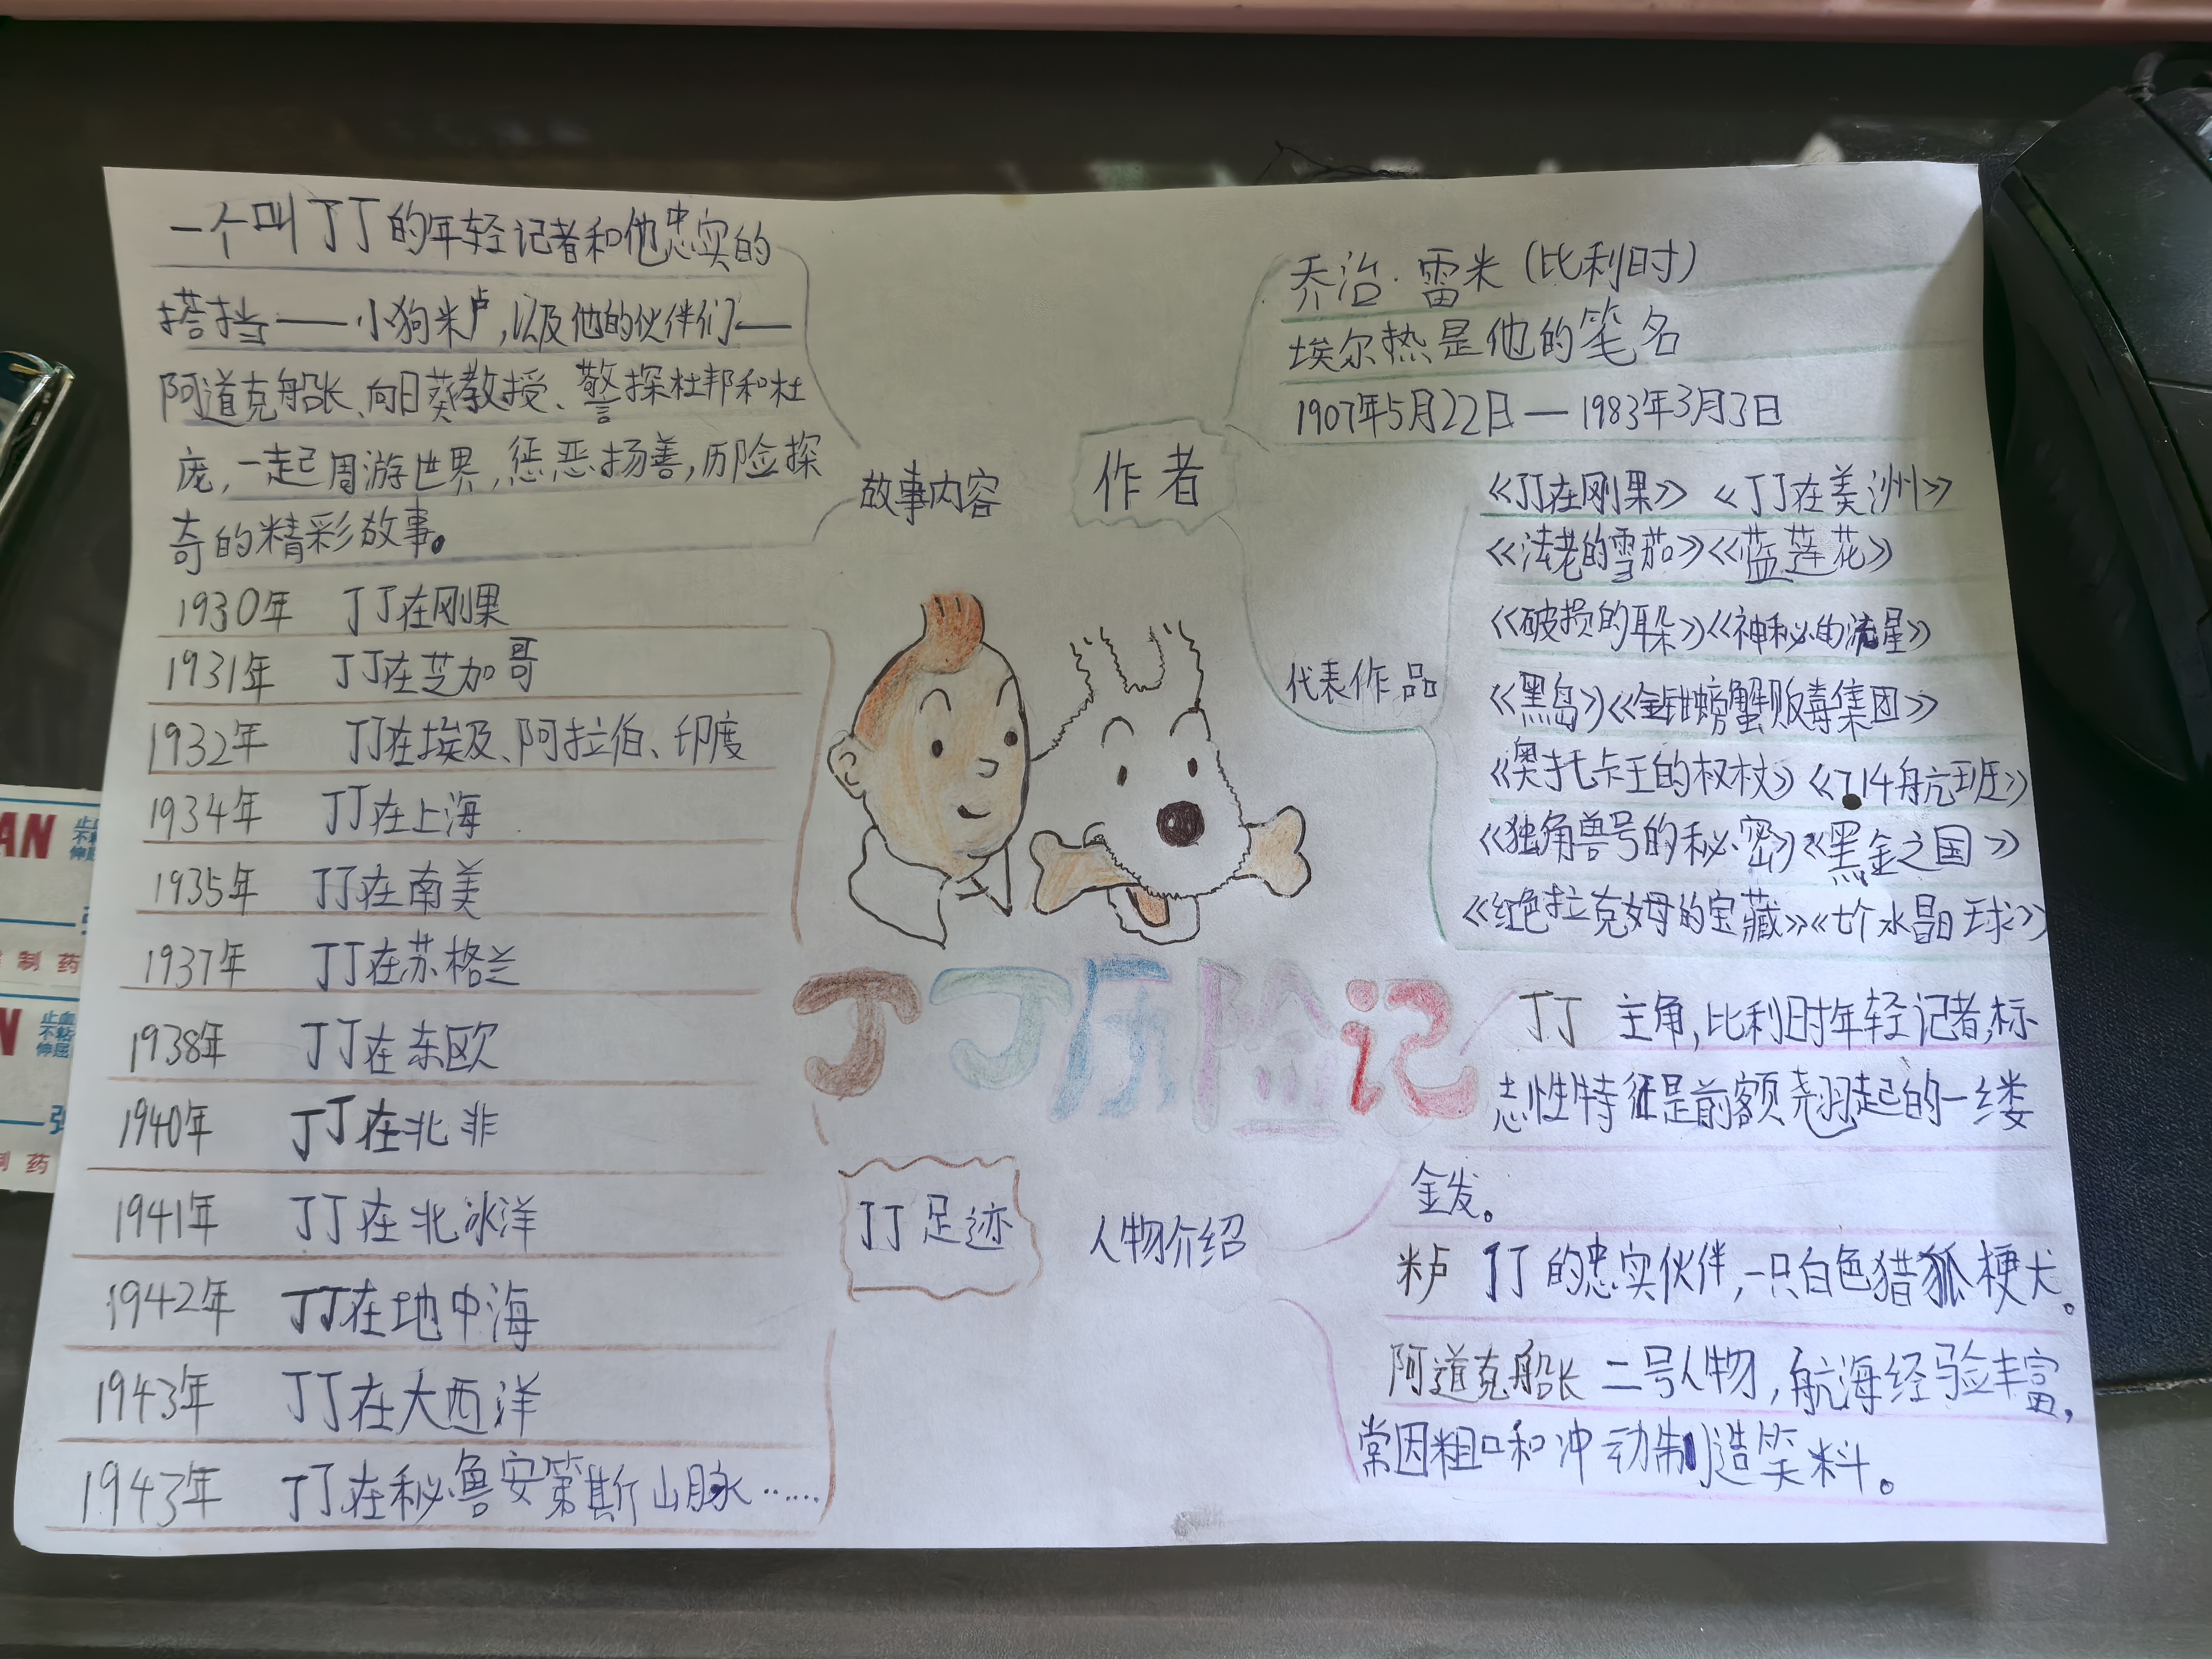 一个叫丁丁的年轻记者和他忠实的
搭挡——小狗米卢,以及他的伙伴们—
阿道克船长、向日葵教授、警探杜邦和杜
庞,一起周游世界,惩恶扬善,历险探
奇的精彩故事。
故事内容
1930年 丁丁在刚果
1931年 丁丁在芝加哥
1932年 丁丁在埃及、阿拉伯、印度
1934年 丁丁在上海
1935年 丁丁在南美
1937年 丁丁在苏格兰
1938年 丁丁在东欧
1940年 丁丁在北非
1941年 丁丁在北冰洋
1942年 丁丁在地中海
1943年 丁丁在大西洋
1943年 丁丁在秘鲁安第斯山脉……
丁丁足迹
丁丁历险记
作者
乔治·雷米(比利时)
埃尔热是他的笔名
1907年5月22日—1983年3月3日
代表作品
《丁在刚果》《丁丁在美洲》
《法老的雪茄》《蓝莲花》
《破损的耳朵》《神秘的流星》
《黑岛》《金钳螃蟹贩毒集团》
《奥托卡王的权杖》《714航班》
《独角兽号的秘密》《黑金之国》
《红色拉克姆的宝藏》《七个水晶球》
人物介绍
丁丁 主角,比利时年轻记者,标
志性特征是前额翘起的一缕
金发。
米卢 丁丁的忠实伙伴,一只白色猎狐梗犬。
阿道克船长 二号人物,航海经验丰富,
常因粗口和冲动制造笑料。
AN
止血
不粘
伸屈
制药
N
止血
不粘
伸屈
制药